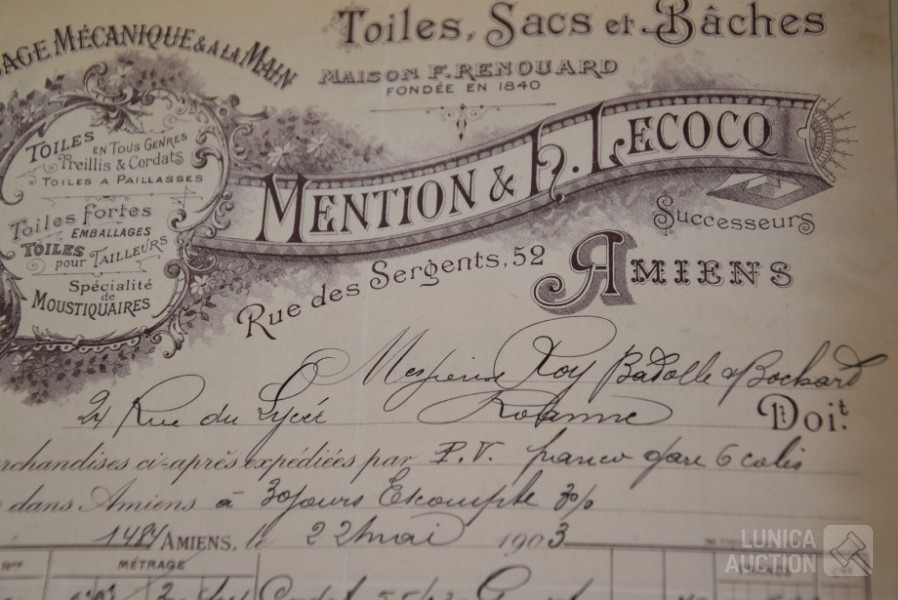 Toiles, Sacs et Bâches
MÉCANIQUE & A LA MAIN
MAISON F. RENOUARD
FONDÉE EN 1840
TOILES EN TOUS GENRES
Treillis & Cordats
TOILES A PAILLASSES
Toiles fortes
EMBALLAGES
TOILES pour TAILLEURS
Spécialité de
MOUSTIQUAIRES
MENTION & H. LECOCQ
Successeurs
Rue des Sergents, 52
AMIENS
Messieurs Roy Badolle & Bochard
24 Rue du Lycée Roanne Doit.
ci-après expédiées par P.V. franco gare 6 colis
dans Amiens à 30 jours Escompte
1484 AMIENS, le 22 mai 1903
MÉTRAGE
LUNICA
AUCTION